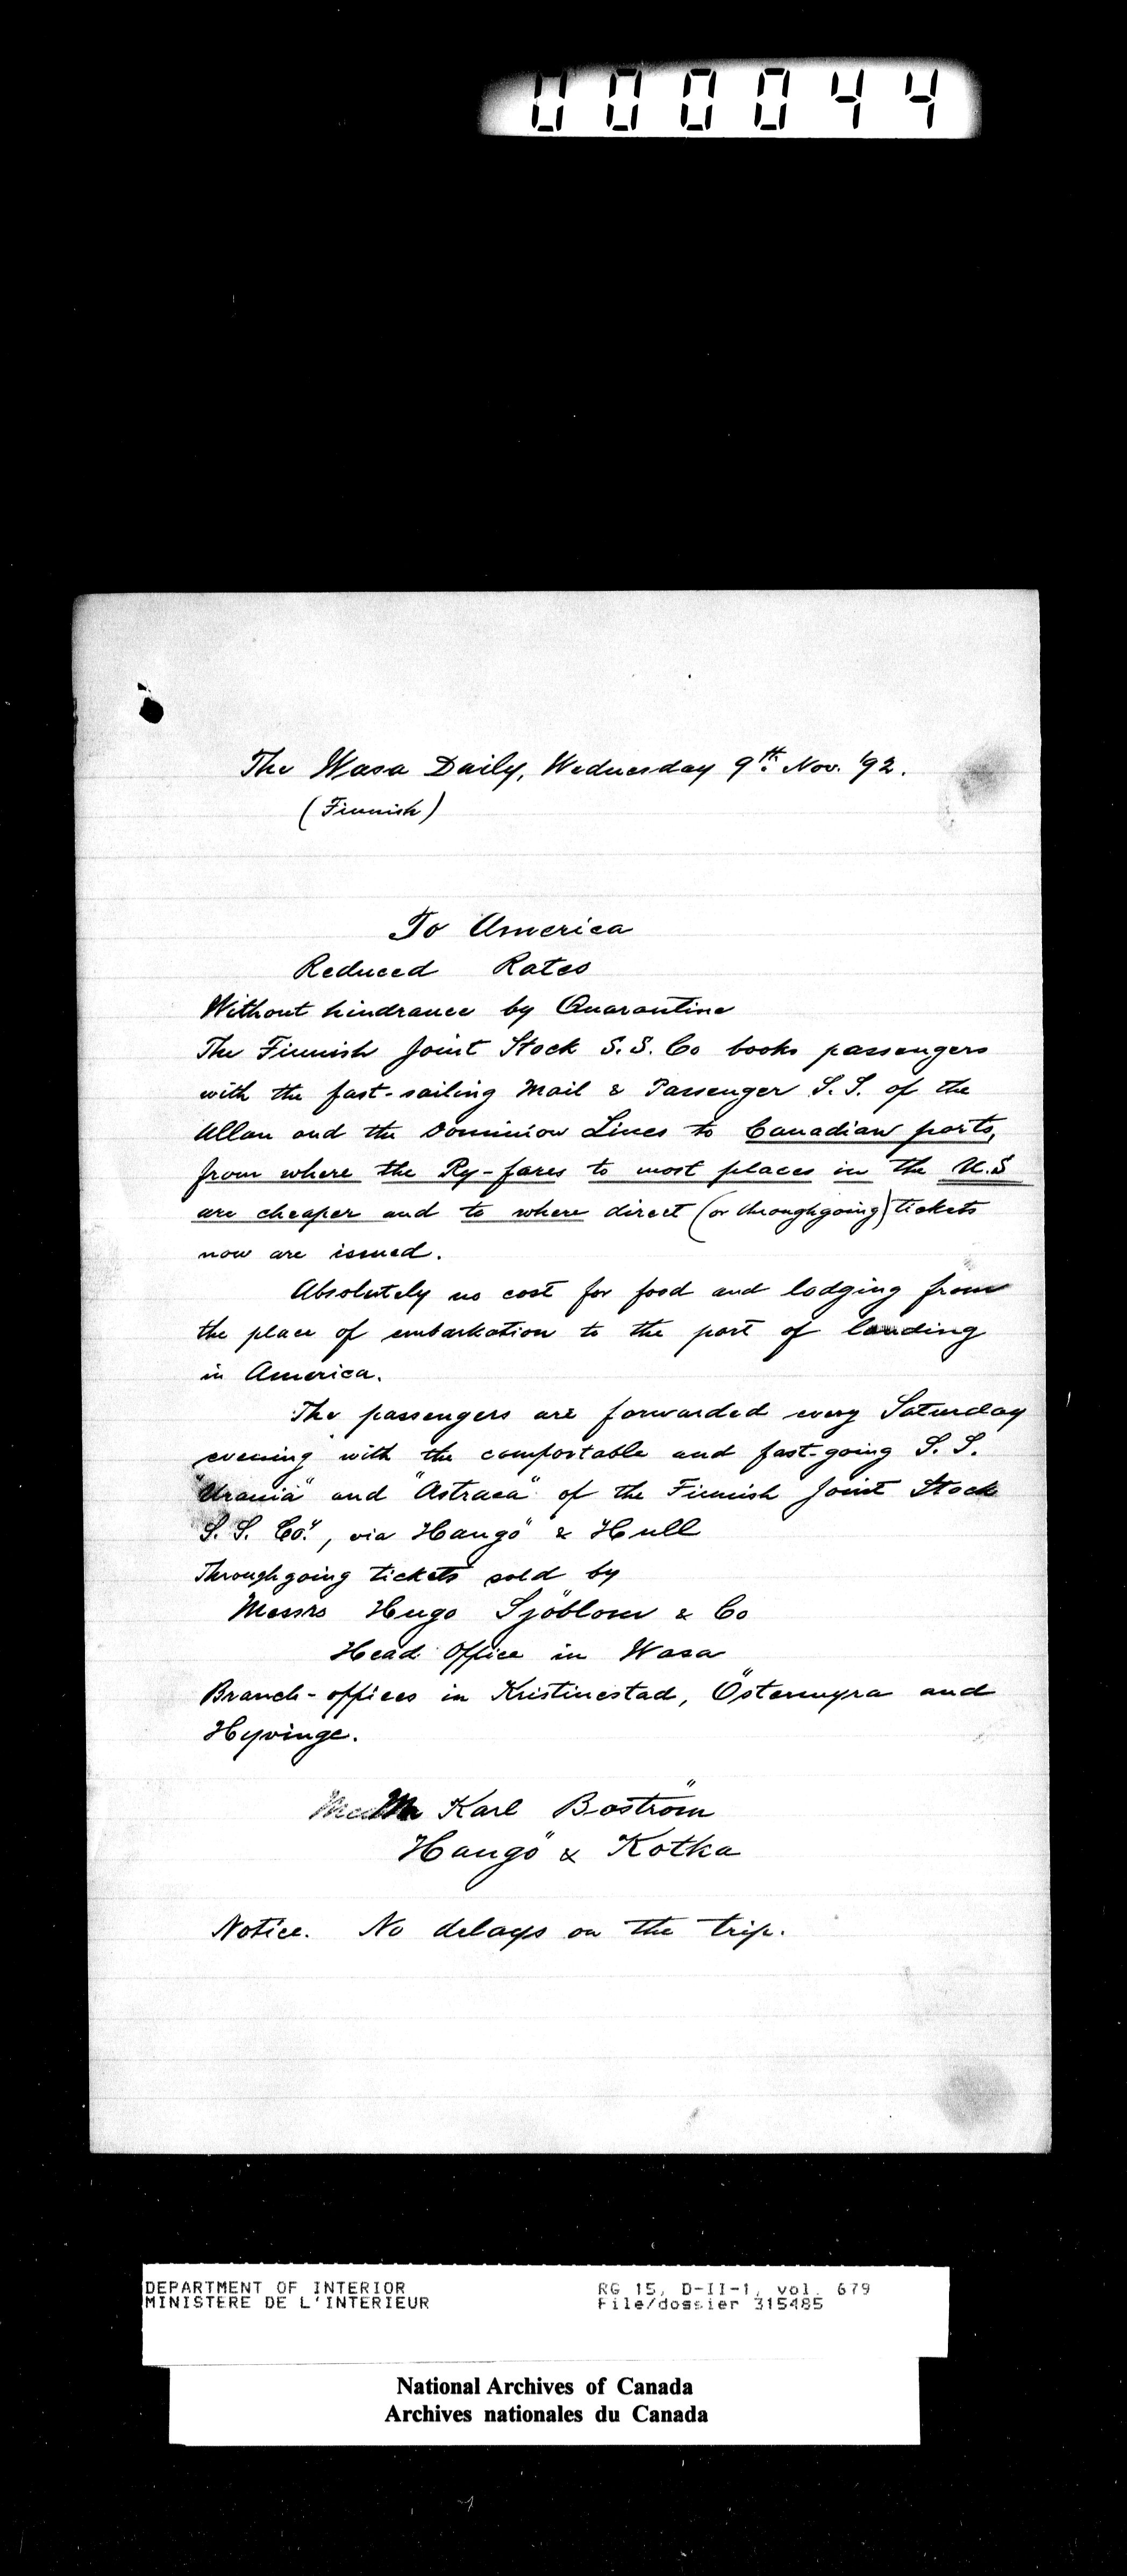 000044
The Wasa Daily, Wednesday 9th Nov. '92.
(Finnish)
To America
Reduced Rates
Without hindrance by Quarantine
The Finnish Joint Stock S.S. Co books passengers
with the fast-sailing Mail & Passenger S.S. of the
Allan and the Dominion Lines to Canadian ports,
from where the Ry-fares to most places in the U.S
are cheaper and to where direct (or throughgoing) tickets
now are issued.
Absolutely no cost for food and lodging from
the place of embarkation to the port of landing
in America.
The passengers are forwarded every Saturday
evening with the comfortable and fast-going S.S.
"Urania" and "Astraea" of the Finnish Joint Stock
S.S. Co., via Hangö & Hull
Throughgoing tickets sold by
Messrs Hugo Sjöblom & Co
Head Office in Wasa
Branch-offices in Kristinestad, Östermyra and
Hyvinge.
Karl Boström
Hangö & Kotka
Notice. No delays on the trip.
DEPARTMENT OF INTERIOR
MINISTERE DE L'INTERIEUR
RG 15, D-II-1, vol. 679
File/dossier 315485
National Archives of Canada
Archives nationales du Canada